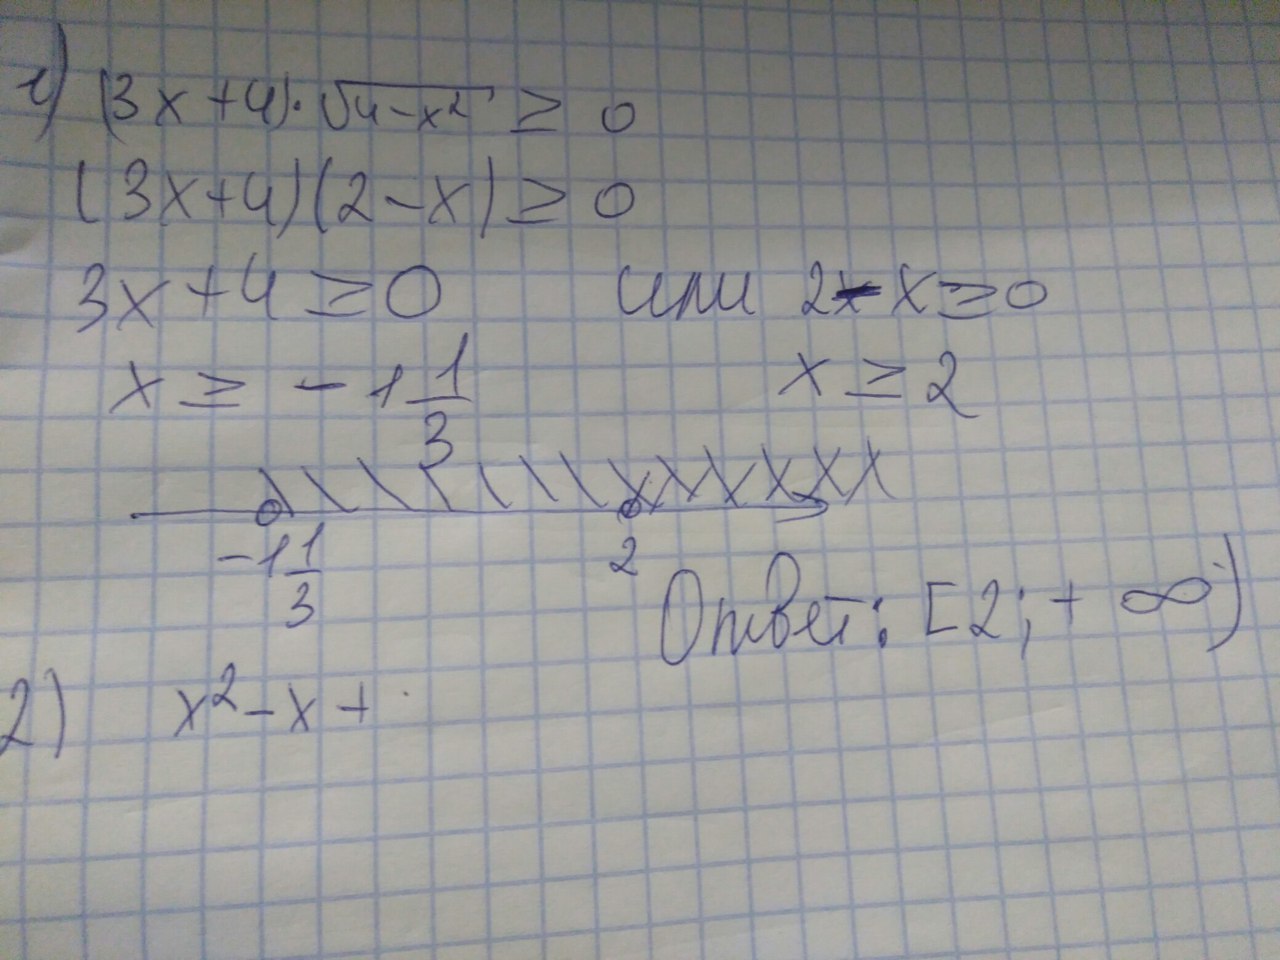 1) (3x+4)·√4-x² ≥ 0
(3x+4)(2-x) ≥ 0
3x+4 ≥ 0 или 2-x ≥ 0
x ≥ -1 1/3 x ≥ 2
-1 1/3 2
Ответ: [2; + ∞)
2) x²-x+